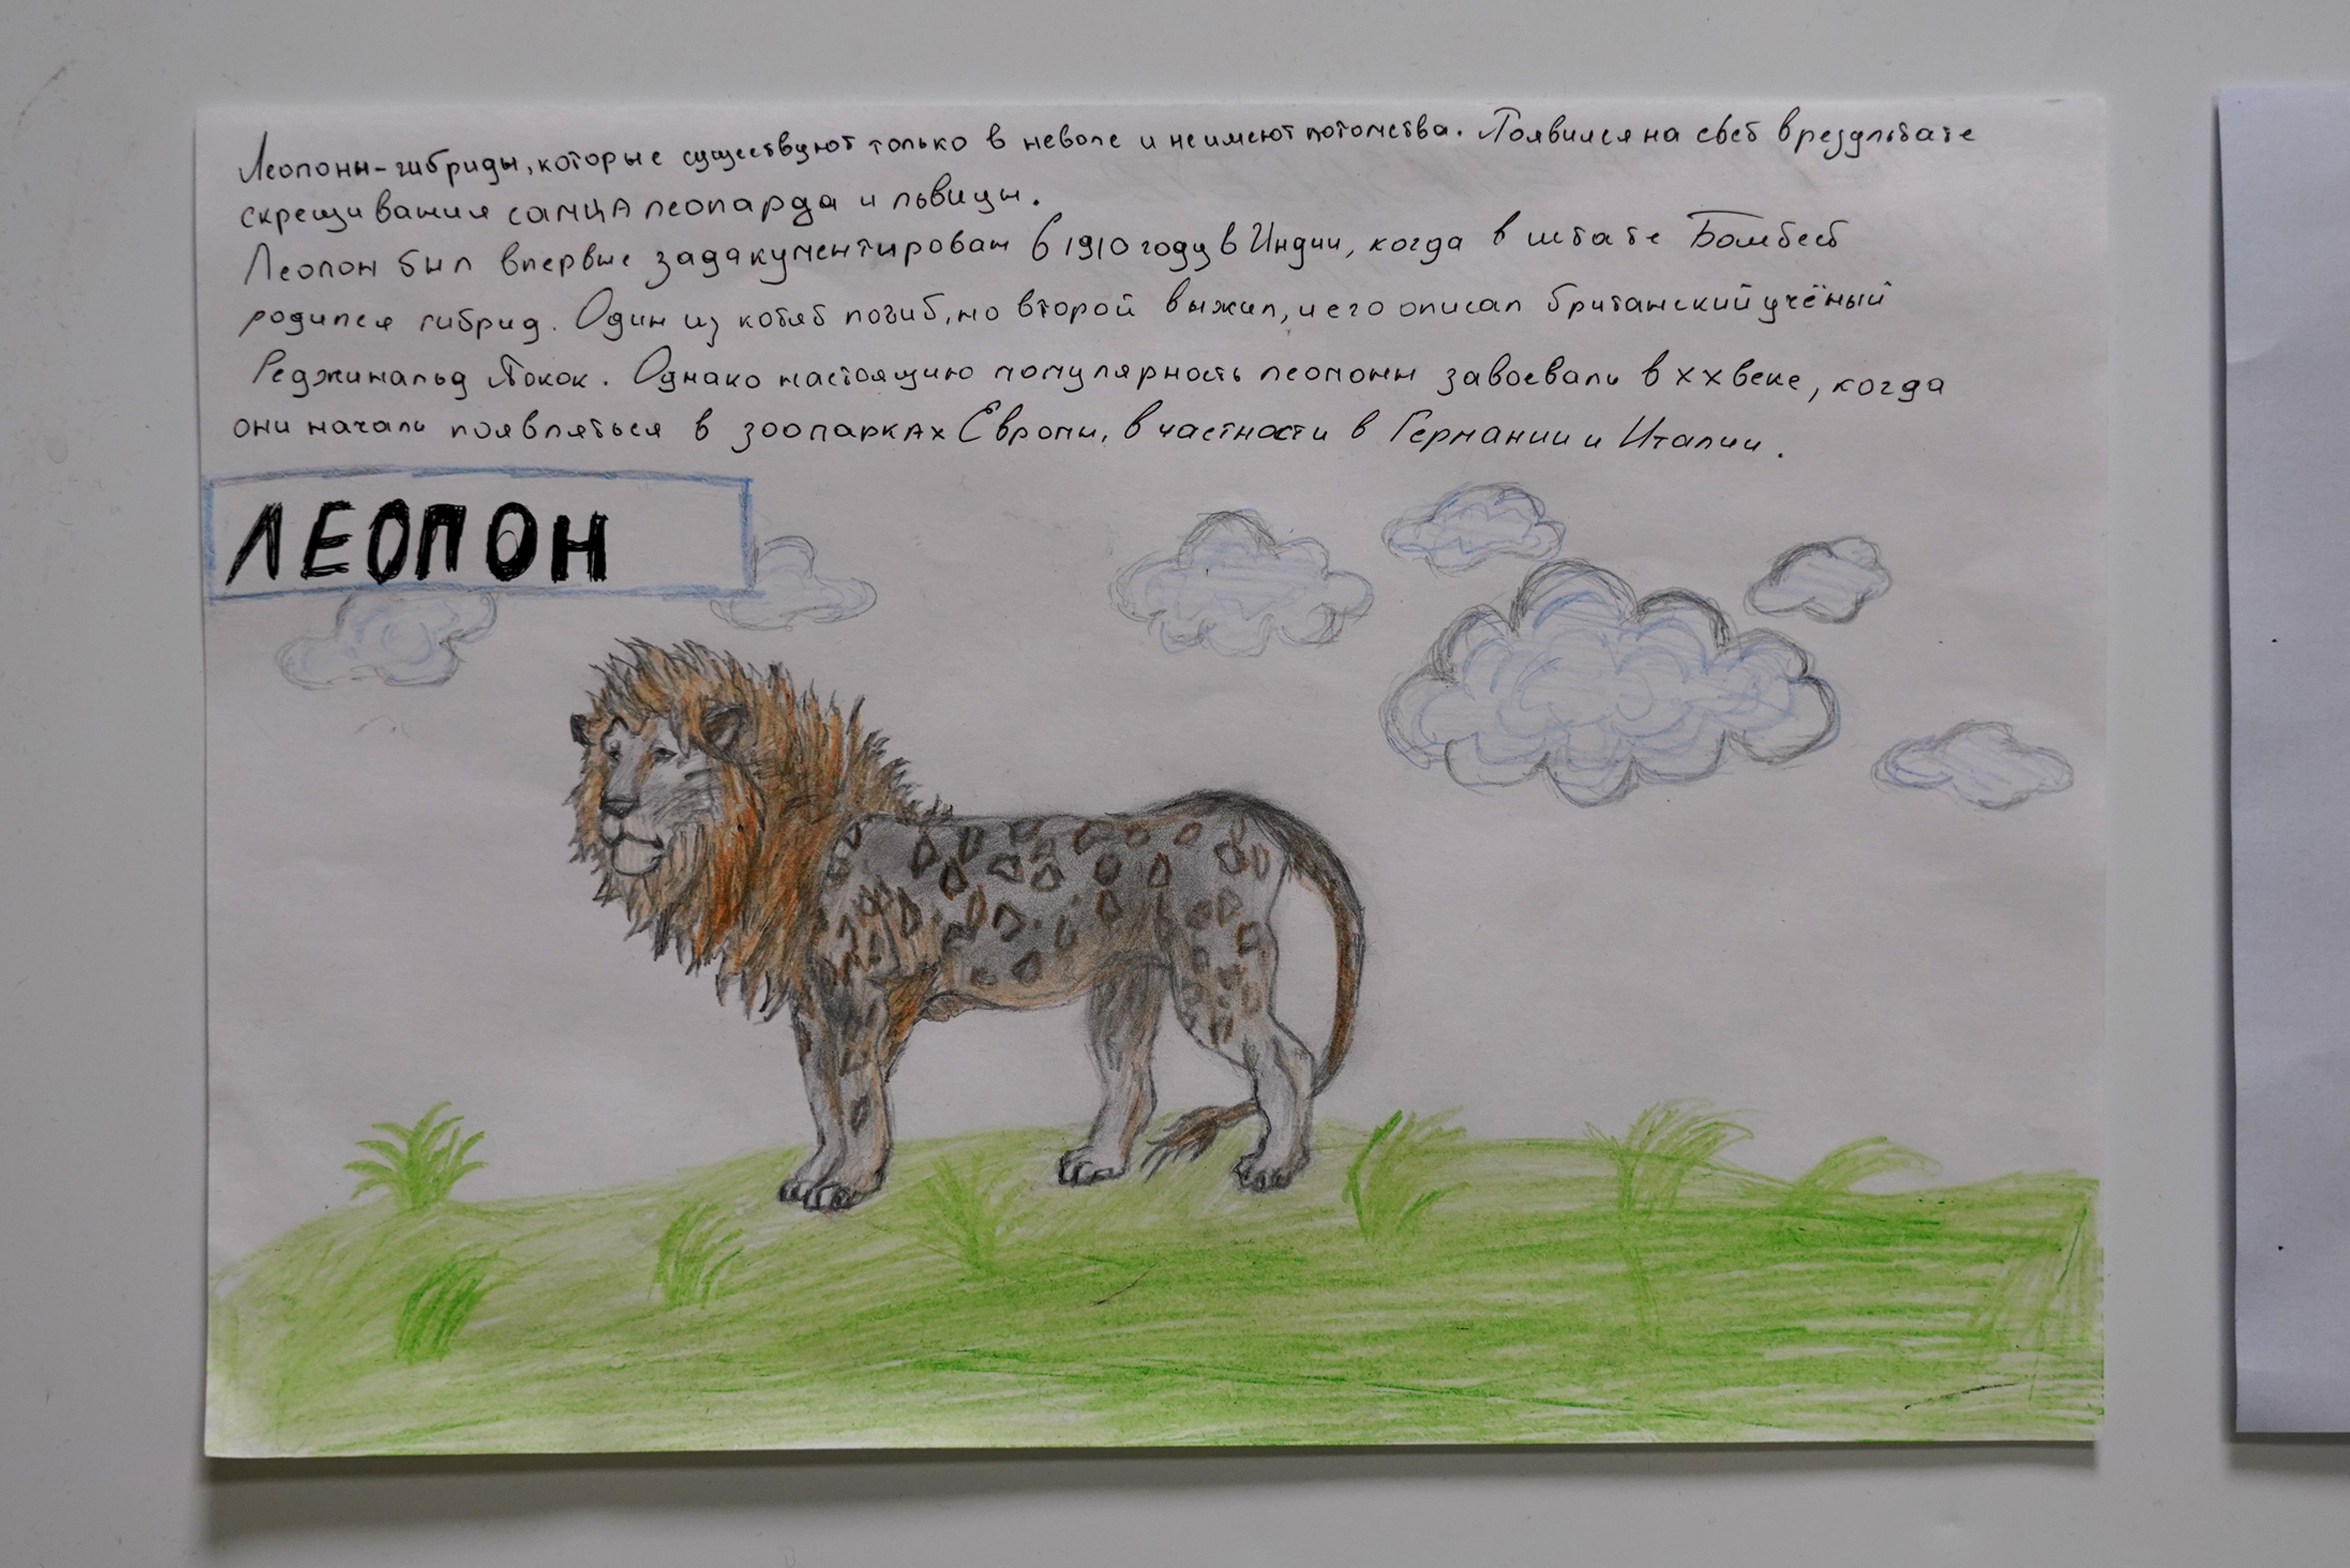 Леопоны-гибриды, которые существуют только в неволе и не имеют потомства. Появился на свет в результате
скрещивания самца леопарда и львицы.
Леопон был впервые задакументирован в 1910 году в Индии, когда в штате Бомбей
родился гибрид. Один из котят погиб, но второй выжил, и его описал британский учёный
Реджинальд Покок. Однако настоящую популярность леопоны завоевали в XX веке, когда
они начали появляться в зоопарках Европы, в частности в Германии и Италии.
ЛЕОПОН